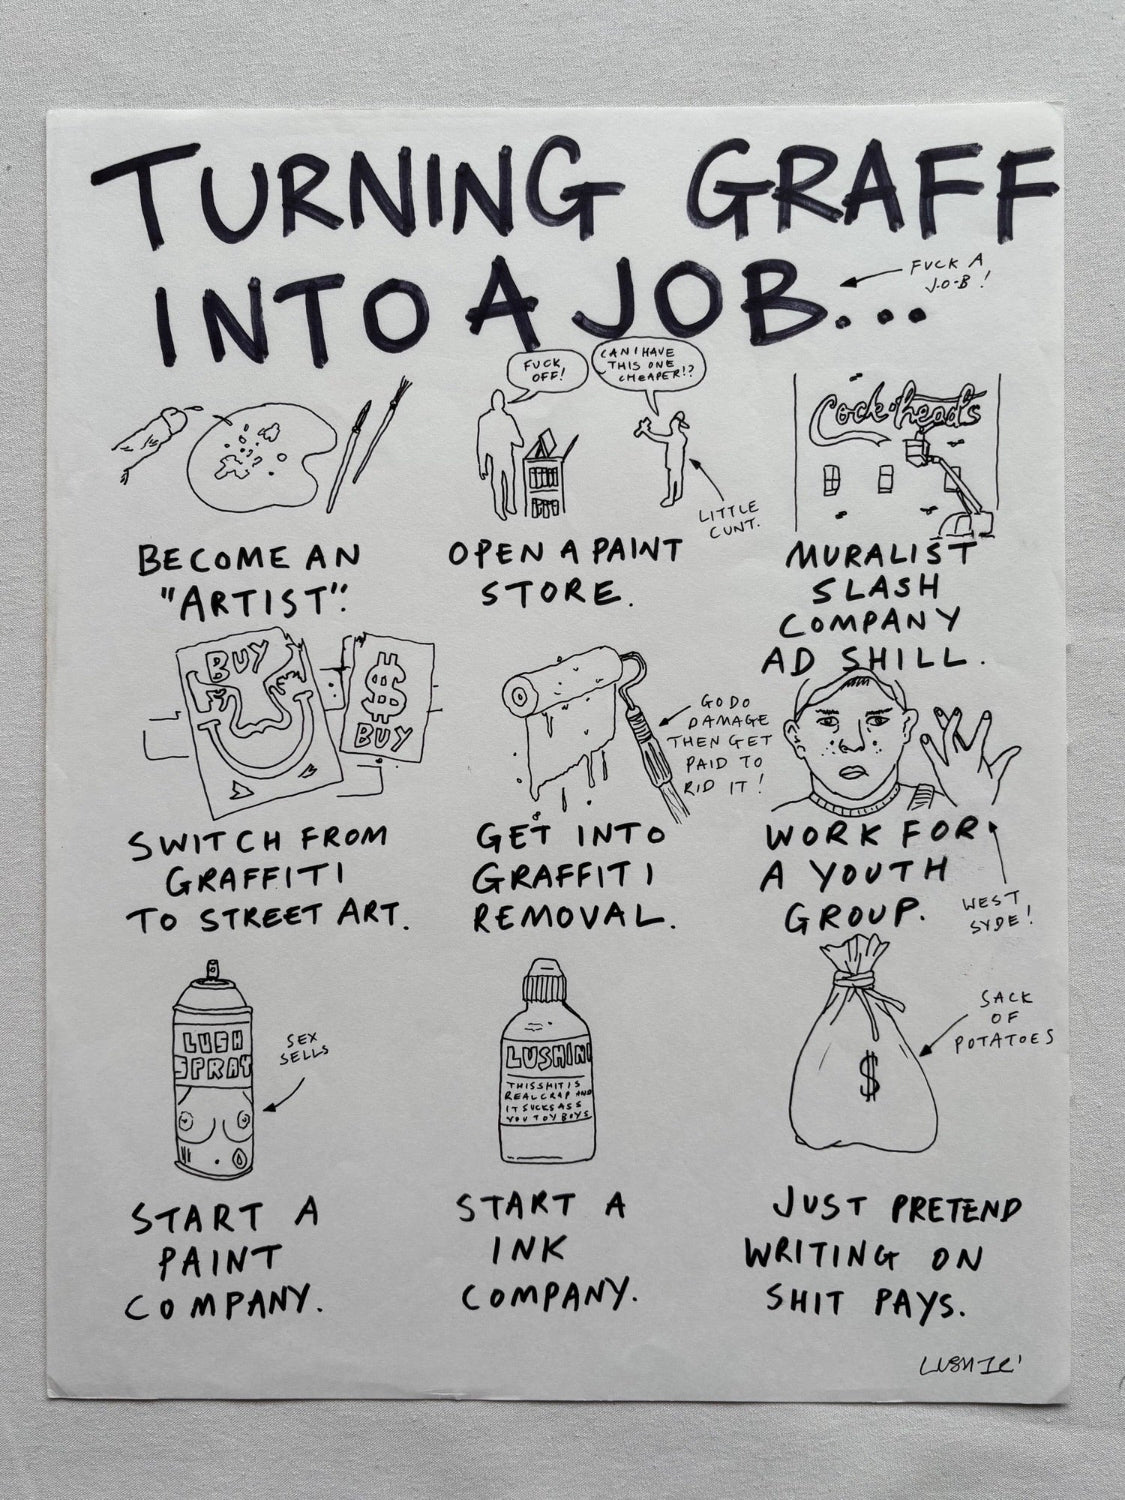 TURNING GRAFF
INTO A JOB...
FUCK A
J.O-B!
FUCK
OFF!
CAN I HAVE
THIS ONE
CHEAPER!?
Cock-head's
LITTLE
CUNT.
BECOME AN
"ARTIST".
OPEN A PAINT
STORE.
MURALIST
SLASH
COMPANY
AD SHILL.
BUY
$
BUY
GO DO
DAMAGE
THEN GET
PAID TO
RID IT!
SWITCH FROM
GRAFFITI
TO STREET ART.
GET INTO
GRAFFITI
REMOVAL.
WORK FOR
A YOUTH
GROUP.
WEST
SYDE!
LUSH
SPRAY
SEX
SELLS
LUSHINK
THIS SHIT IS
REAL CRAP AND
IT SUCKS ASS
YOU TOY BOYS
$
SACK
OF
POTATOES
START A
PAINT
COMPANY.
START A
INK
COMPANY.
JUST PRETEND
WRITING ON
SHIT PAYS.